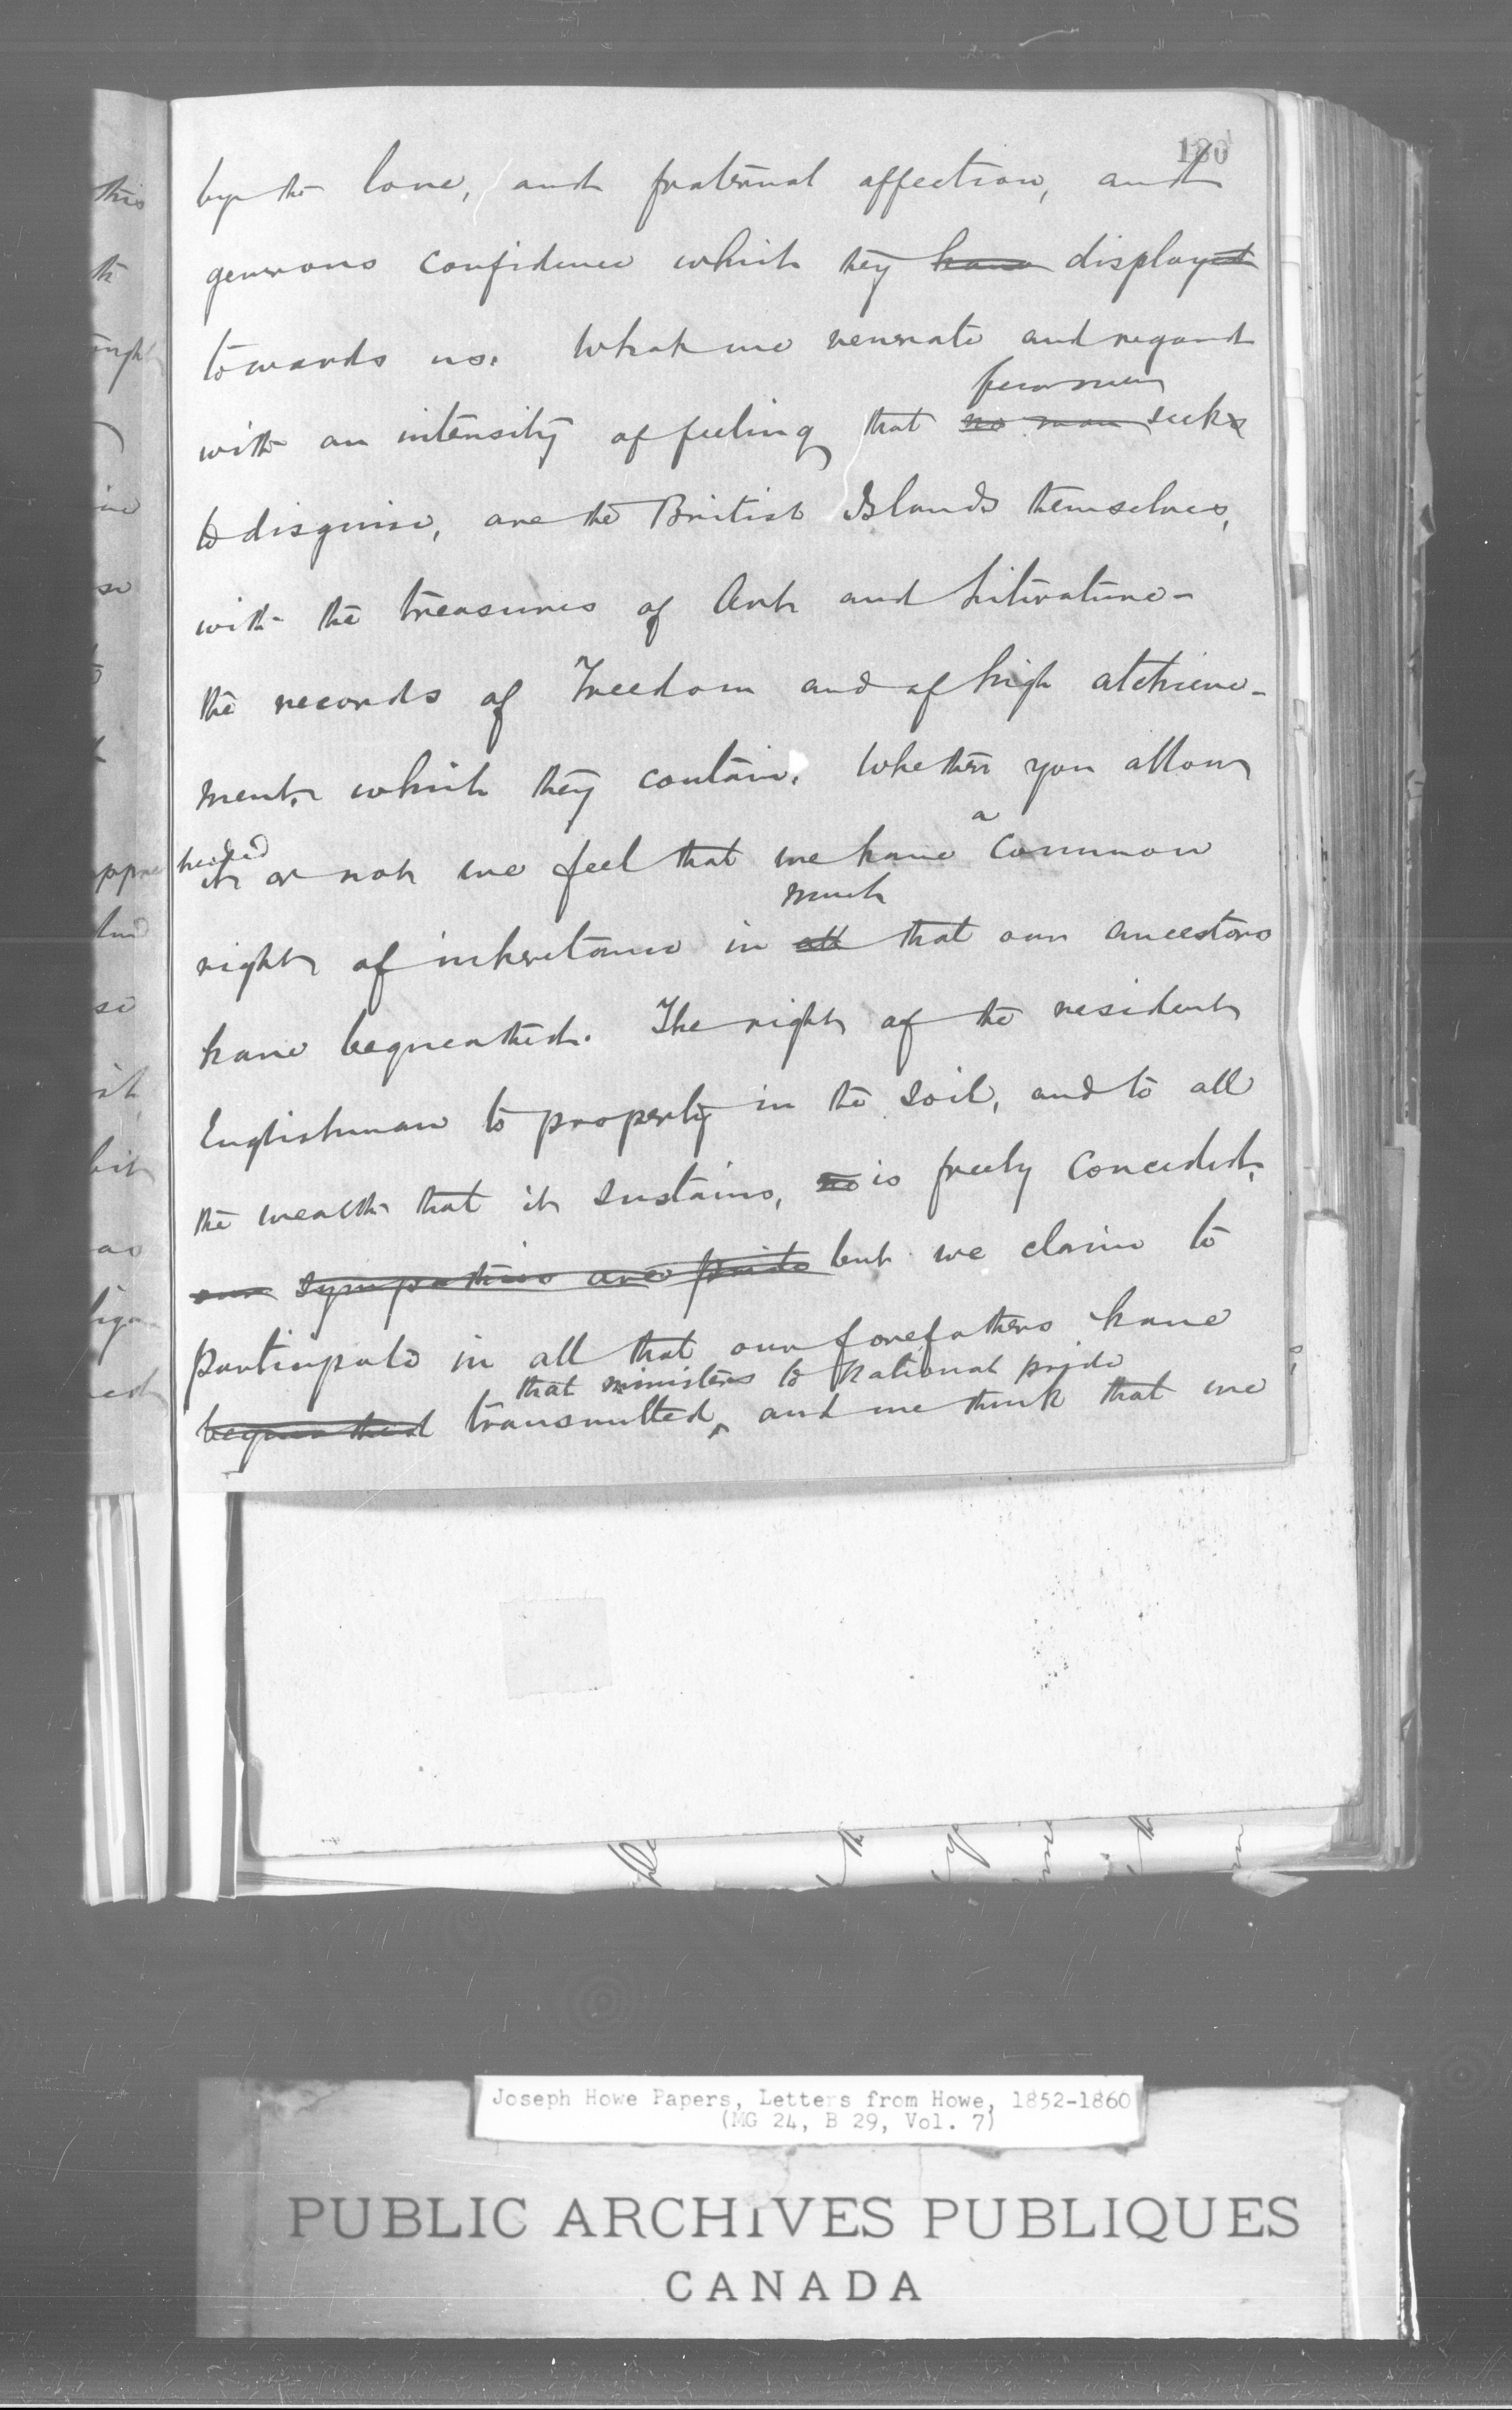 180
by the love, and fraternal affection, and
generous confidence which they have displayed
towards us. What we venerate and regard
few men
with an intensity of feeling that no man seeks
to disguise, are the British Islands themselves,
with the treasures of Art and Literature -
the records of Freedom and of high atchieve-
ment, which they contain. Whether you allow
a
it or not we feel that we have common
much
right of inheritance in all that our ancestors
have bequeathed. The right of the resident
Englishman to property in the soil, and to all
the wealth that it sustains, is freely conceded,
our sympathies are pride but we claim to
participate in all that our forefathers have
that ministers to national pride
bequeathed transmitted, and we think that we
this
th
ought
ive
so
appre hended
se
it
bit
as
Joseph Howe Papers, Letters from Howe, 1852-1860
(MG 24, B 29, Vol. 7)
PUBLIC ARCHIVES PUBLIQUES
CANADA